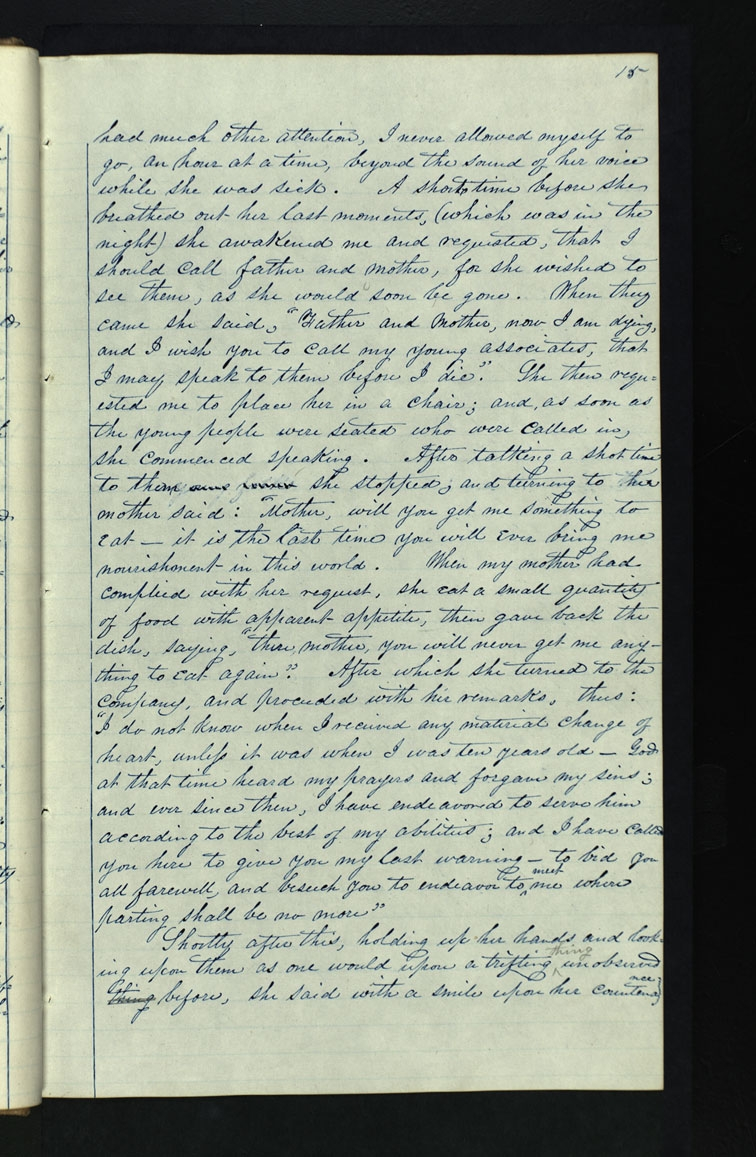 15
had much other attention, I never allowed myself to
go, an hour at a time, beyond the sound of her voice
while she was sick. A short time before she
breathed out her last moments, (which was in the
night) she awakened me and requested, that I
should call father and mother, for she wished to
see them, as she would soon be gone. When they
came she said, "Father and Mother, now I am dying,
and I wish you to call my young associates, that
I may speak to them before I die". She then requ=
ested me to place her in a chair; and, as soon as
the young people were seated who were called in,
she commenced speaking. After talking a shot time
to them she stopped; and turning to her
mother said: "Mother, will you get me something to
eat — it is the last time you will ever bring me
nourishment in this world. When my mother had
complied with her request, she eat a small quantity
of food with apparent appetite, then gave back the
dish, saying, "there, mother, you will never get me any-
thing to eat again". After which she turned to the
company, and proceeded with her remarks, thus:
"I do not know when I received any material change of
heart, unless it was when I was ten years old — God
at that time heard my prayers and forgave my sins;
and ever since then, I have endeavored to serve him
according to the best of my abilities; and I have called
you here to give you my last warning — to bid you
all farewell, and beseech you to endeavor to meet me where
parting shall be no more"
Shortly after this, holding up her hands and look-
ing upon them as one would upon a trifling thing unobserved
thing before, she said with a smile upon her countenance